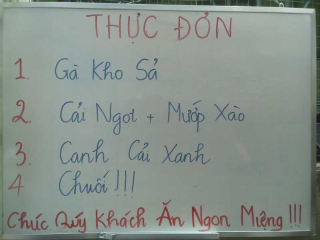 THỰC ĐƠN
1. Gà Kho Sả
2. Cải Ngọt + Mướp Xào
3. Canh Cải Xanh
4 Chuối !!!
Chúc Qúy Khách Ăn Ngon Miệng !!!